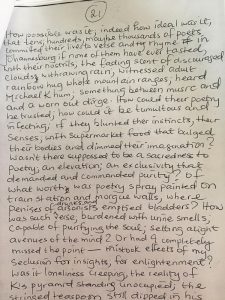 (21)
How possible was it, indeed how ideal was it,
that tens, hundreds, maybe thousands of poets
commited their lives to verse and rhyme in
Johannesburg if none of them have ever tasted,
with their nostrils, the fading scent of discouraged
clouds withdrawing rain, witnessed adult
rainbow hug whole mountain ranges, heard
Michael K hum, something between music and
and a worn out dirge. How could their poetry
be trusted, how could it be tumultous and
infecting, if they blunted their instincts, their
senses, with supermarket food that bulged
their bodies and dimmed their imagination?
Wasn't there supposed to be a sacredness to
Poetry, an elevation, an exclusivity that
demanded and commanded purity? Of
what worth was poetry spray painted on
train station and morgue walls, where
drunks
Penises of arsonists emptied bladders? How
was such verse, burdened with urine smells,
capable of purifying the soul, setting alight
avenues of the mind? Or had I completely
missed the point — mistook effects of my
seclusion for insights, for enlightenment?
Was it loneliness creeping, the reality of
K's pyramid standing unocupied, the
stringed teaspoon still dipped in his